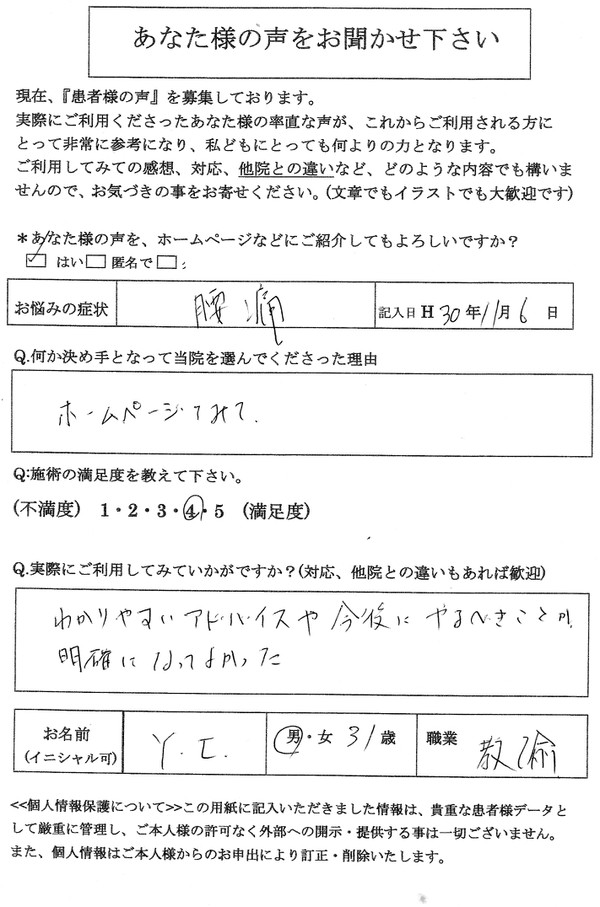 あなた様の声をお聞かせ下さい
現在、『患者様の声』を募集しております。
実際にご利用くださったあなた様の率直な声が、これからご利用される方に
とって非常に参考になり、私どもにとっても何よりの力となります。
ご利用してみての感想、対応、他院との違いなど、どのような内容でも構いま
せんので、お気づきの事をお寄せください。(文章でもイラストでも大歓迎です)
＊あなた様の声を、ホームページなどにご紹介してもよろしいですか？
☑ はい □ 匿名で □
お悩みの症状 腰痛 記入日 H 30 年 11 月 6 日
Q.何か決め手となって当院を選んでくださった理由
ホームページてみて.
Q:施術の満足度を教えて下さい。
(不満度) 1・2・3・4・5 (満足度)
Q.実際にご利用してみていかがですか？(対応、他院との違いもあれば歓迎)
わかりやすいアドバイスや今後にやるべきことが
明確になってよかった
お名前 (イニシャル可) Y.I. 男・女 31 歳 職業 教諭
<<個人情報保護について>>この用紙に記入いただきました情報は、貴重な患者様データと
して厳重に管理し、ご本人様の許可なく外部への開示・提供する事は一切ございません。
また、個人情報はご本人様からのお申出により訂正・削除いたします。